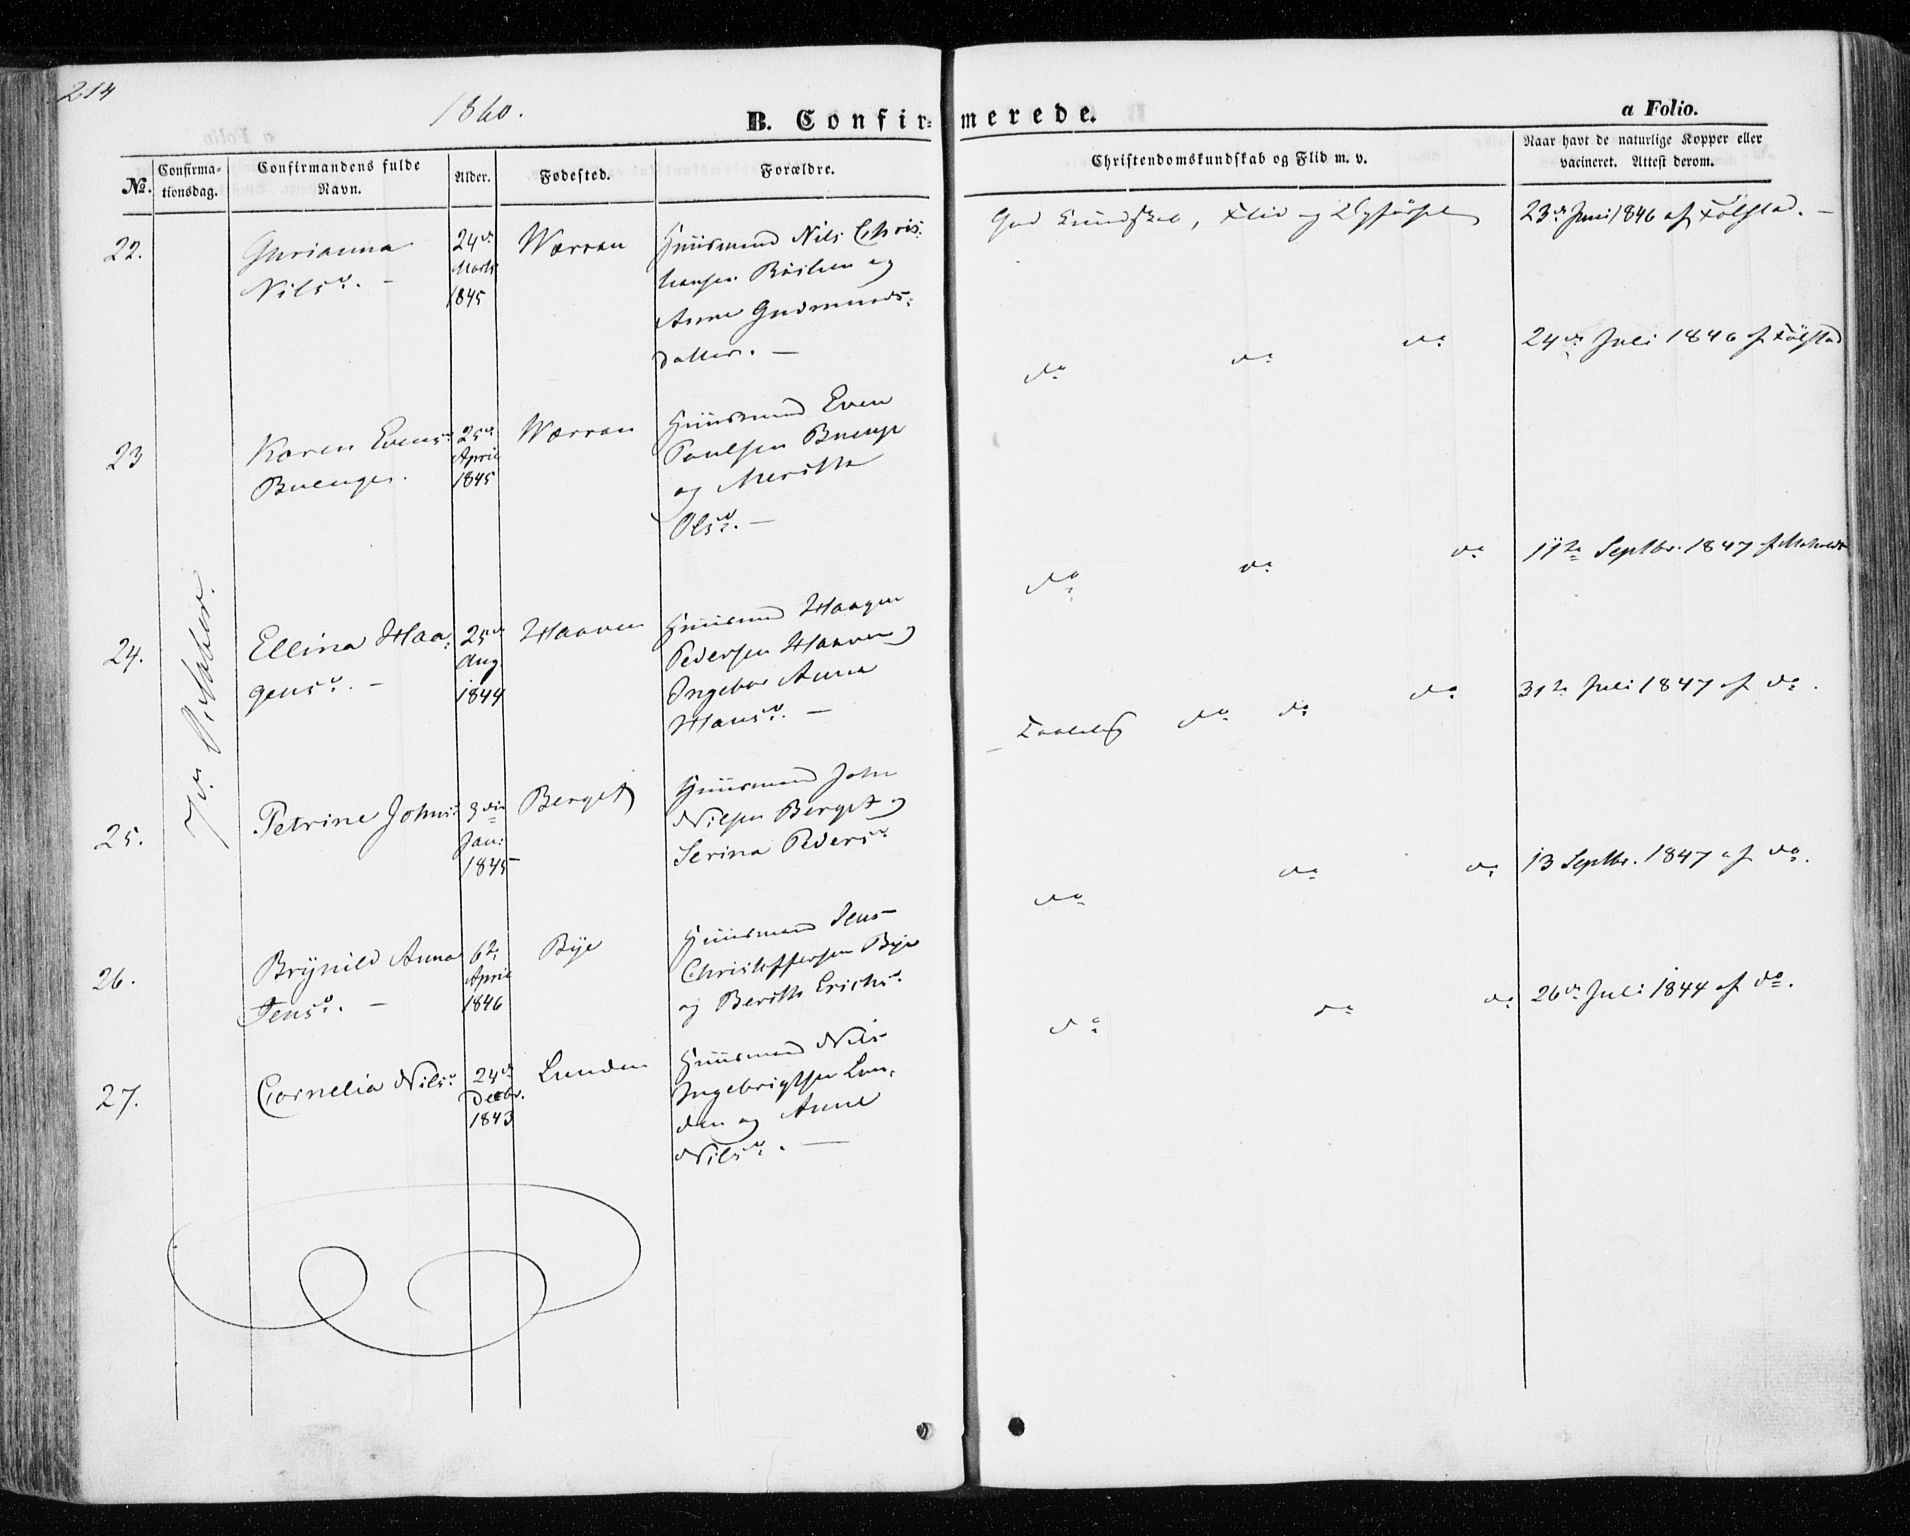 214
1860.
B. Confirmerede.
a Folio.
No.
Confirma-
tionsdag.
Confirmandens fulde
Navn.
Alder.
Fødested.
Forældre.
Christendomskundskab og Flid m. v.
Naar havt de naturlige Kopper eller
vacineret. Attest derom.
7de October.
22.
Gurianna
Nilsd. -
24de
Marts
1845
Værran
Huusmand Nils Chris:
tiansen og
Anne Gudmunds:
datter. -
God Kundskab, Flid og Opførsel
23de Juni 1846 af Følstad. -
23
Karen Evensd
Buenget.
25de
April
1845
Værran
Huusmand Even
Paulsen Buenge
og Merethe
Olsd. -
do do do
24de Juli 1846 af Følstad
24.
Ellina Haa:
gensd. -
25de
Aug.
1844
Haaven
Huusmand Haagen
Pedersen Haaven og
Ingebor Anna
Hansd. -
do do do
11te Septbr. 1847 af
25.
Petrine Johnsd
3die
Jan:
1845
Berget
Huusmand John
Nilsen Berget og
Serina Pedersd
Taalelig do do do
31te Juli 1847 af do.
26.
Brynild Anna
Jensd. -
6te
April
1846
Bye
Huusmand Jens
Christoffersen Bye
og Berith Erichsd.
do do do
13 Septbr. 1847 af do.
27.
Cornelia Nilsd
24de
Decbr.
1843
Lunden
Huusmand Nils
Ingebrigtsen Lun:
den og Anne
Nilsd. -
do do do
26de Juli 1844 af do.